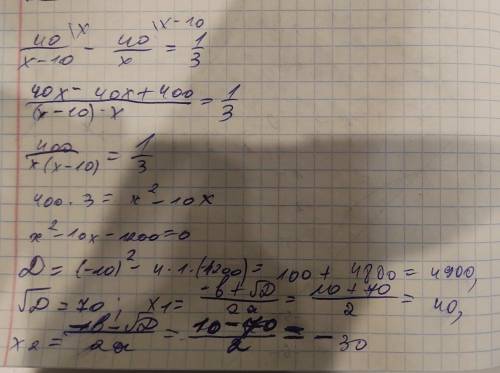 40/(x-10) \x - 40/x \x-10 = 1/3
(40x - 40x + 400)/((x-10)·x) = 1/3
400/(x(x-10)) = 1/3
400 · 3 = x² - 10x
x² - 10x - 1200 = 0
D = (-10)² - 4·1·(-1200) = 100 + 4800 = 4900,
√D = 70; x₁ = (-b + √D)/2a = (10 + 70)/2 = 40,
x₂ = (-b - √D)/2a = (10 - 70)/2 = -30